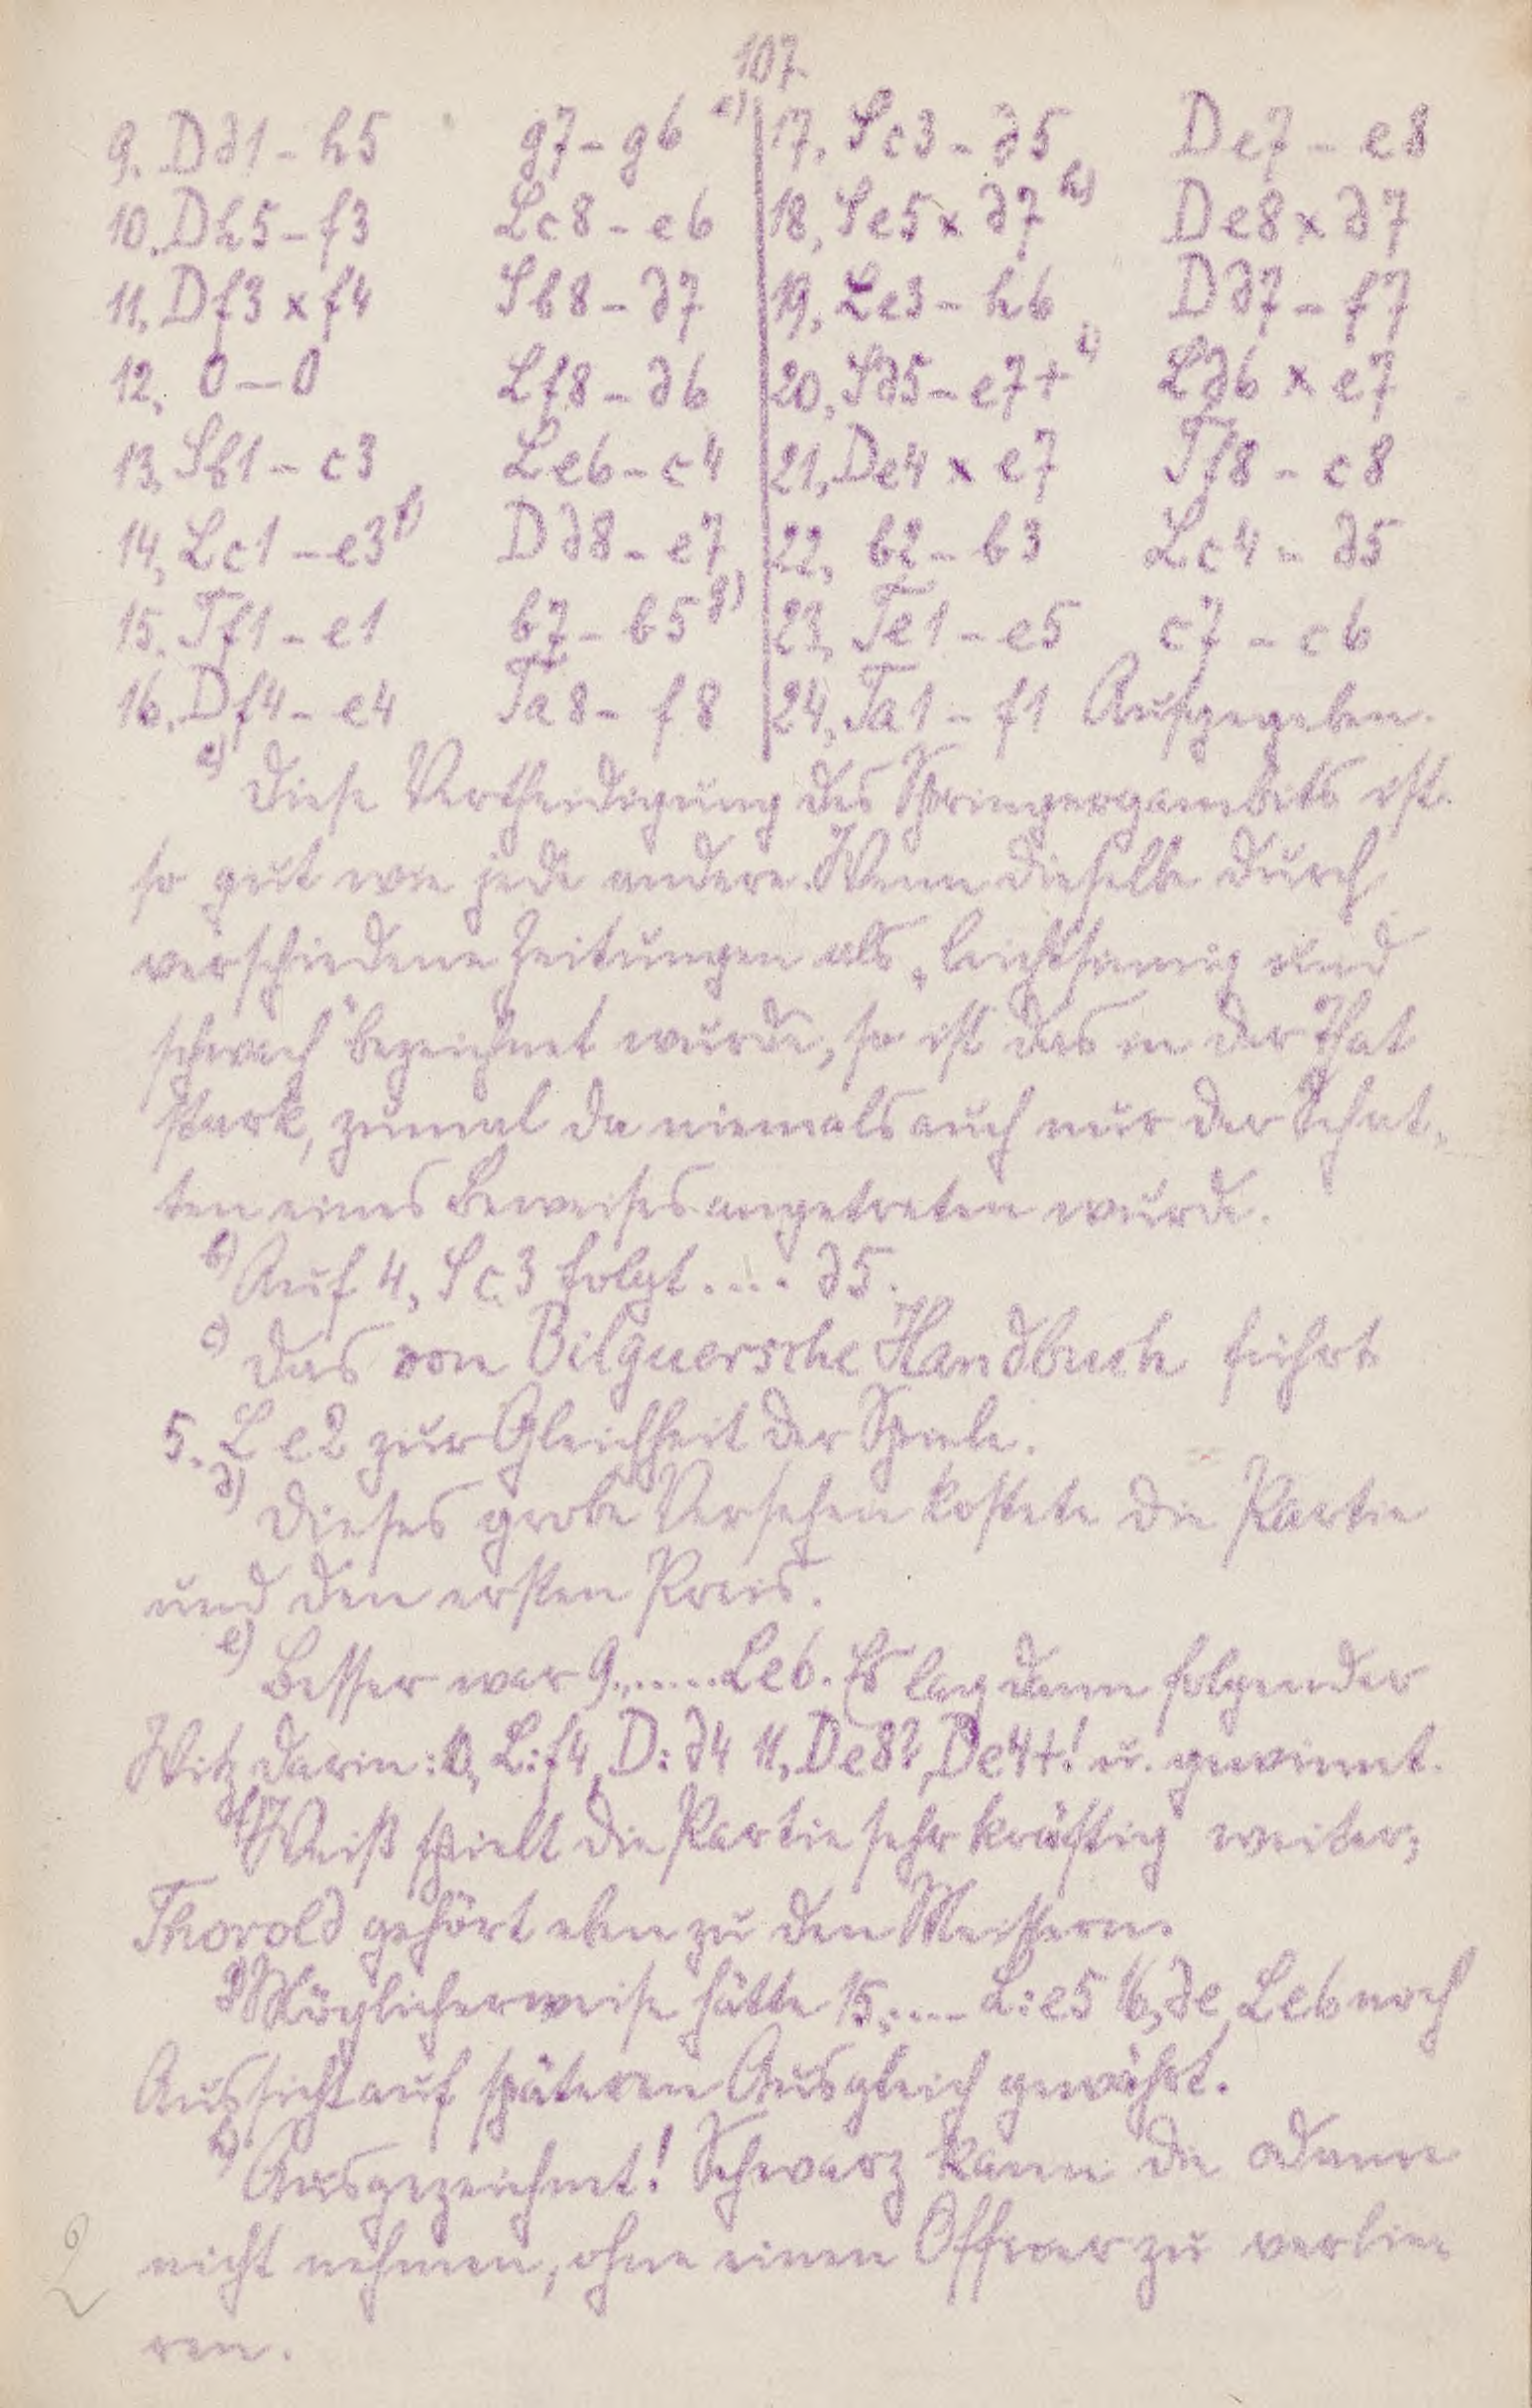 107.
9. Dd1 – h5 g7 – g6 e)
10. Dh5 – f3 Lc8 – e6
11. Df3 x f4 Sb8 – d7
12. 0 – 0 Lf8 – d6
13. Sb1 – c3 Le6 – c4
14. Lc1 – e3 f) Dd8 – e7
15. Tf1 – e1 b7 – b5 g)
16. Df4 – e4 Ta8 – f8
17. Sc3 – d5 De7 – e8
18. Se5 x d7 h) De8 x d7
19. Le3 – h6 Dd7 – f7
20. Sd5 – e7+ i) Ld6 x e7
21. De4 x e7 Tf8 – c8
22. b2 – b3 Lc4 – d5
23. Te1 – e5 c7 – c6
24. Ta1 – f1 Aufgegeben.
a) Diese Vertheidigung des Springergambits ist
so gut wie jede andere. Wenn dieselbe durch
verschiedene Zeitungen als „leichtsinnig und
schwach" bezeichnet wurde, so ist das in der That
stark, zumal da niemals auch nur der Schat-
ten eines Beweises angetreten wurde.
b) Auf 4, Sc3 folgt .... d5.
c) Das von Bilguersche Handbuch führt
5. Le2 zur Gleichheit der Spiele.
d) Dieses grobe Versehen kostete die Partie
und den ersten Preis.
e) Besser war 9., ..... Le6. Es lag dann folgender
Witz darin: 10, L:f4, D:d4 11, De8? De4+! u. gewinnt.
f) Weiß spielt die Partie sehr kräftig weiter;
Thorold gehört eben zu den Meistern.
g) Möglicherweise hätte 15, .... L:e5 16, de, Le6 noch
Aussicht auf späteren Ausgleich gewährt.
h) Ausgezeichnet! Schwarz kann die Dame
nicht nehmen, ohne einen Officier zu verlie-
ren.